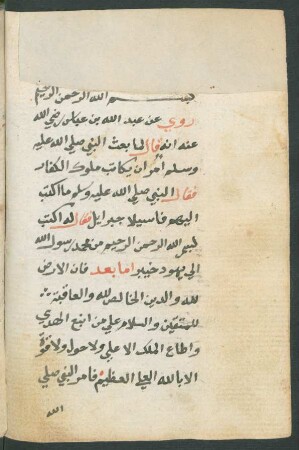 بسم الله الرحمن الرحيم
روي عن عبد الله بن عباس رضي الله
عنه انه قال لما بعث النبي صلى الله عليه
وسلم امر ان يكاتب ملوك الكفار
فقال النبي صلى الله عليه وسلم ما اكتب
اليهم فاسيلا جبرايل فقال له اكتب
بسم الله الرحمن الرحيم من محمد رسول الله
الى يهود خيبر اما بعد فان الارض
لله والدين الخالص لله والعاقبة
للمتقين والسلام على من اتبع الهدى
واطاع الملك الاعلى ولا حول ولا قوة
الا بالله العلي العظيم فامر النبي صلى
الله